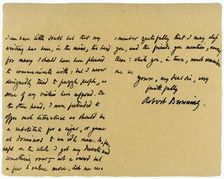 I can have little doubt but that my
writing has been, in the main, too hard
for many I should have been pleased
to communicate with; but I never
designedly tried to puzzle people, as
some of my critics have supposed. On
the other hand, I never pretended to
offer such literature as should be
a substitute for a cigar, or game
at dominoes to an idle man. So
on the whole I get my deserts and
something over - not a crowd but
a few I value more. Let me
remember gratefully that I may
you, and the friends you mention,
thus: while you, in turn, must remember
me as
Yours, my dear Sir, very
faithfully
Robert Browning